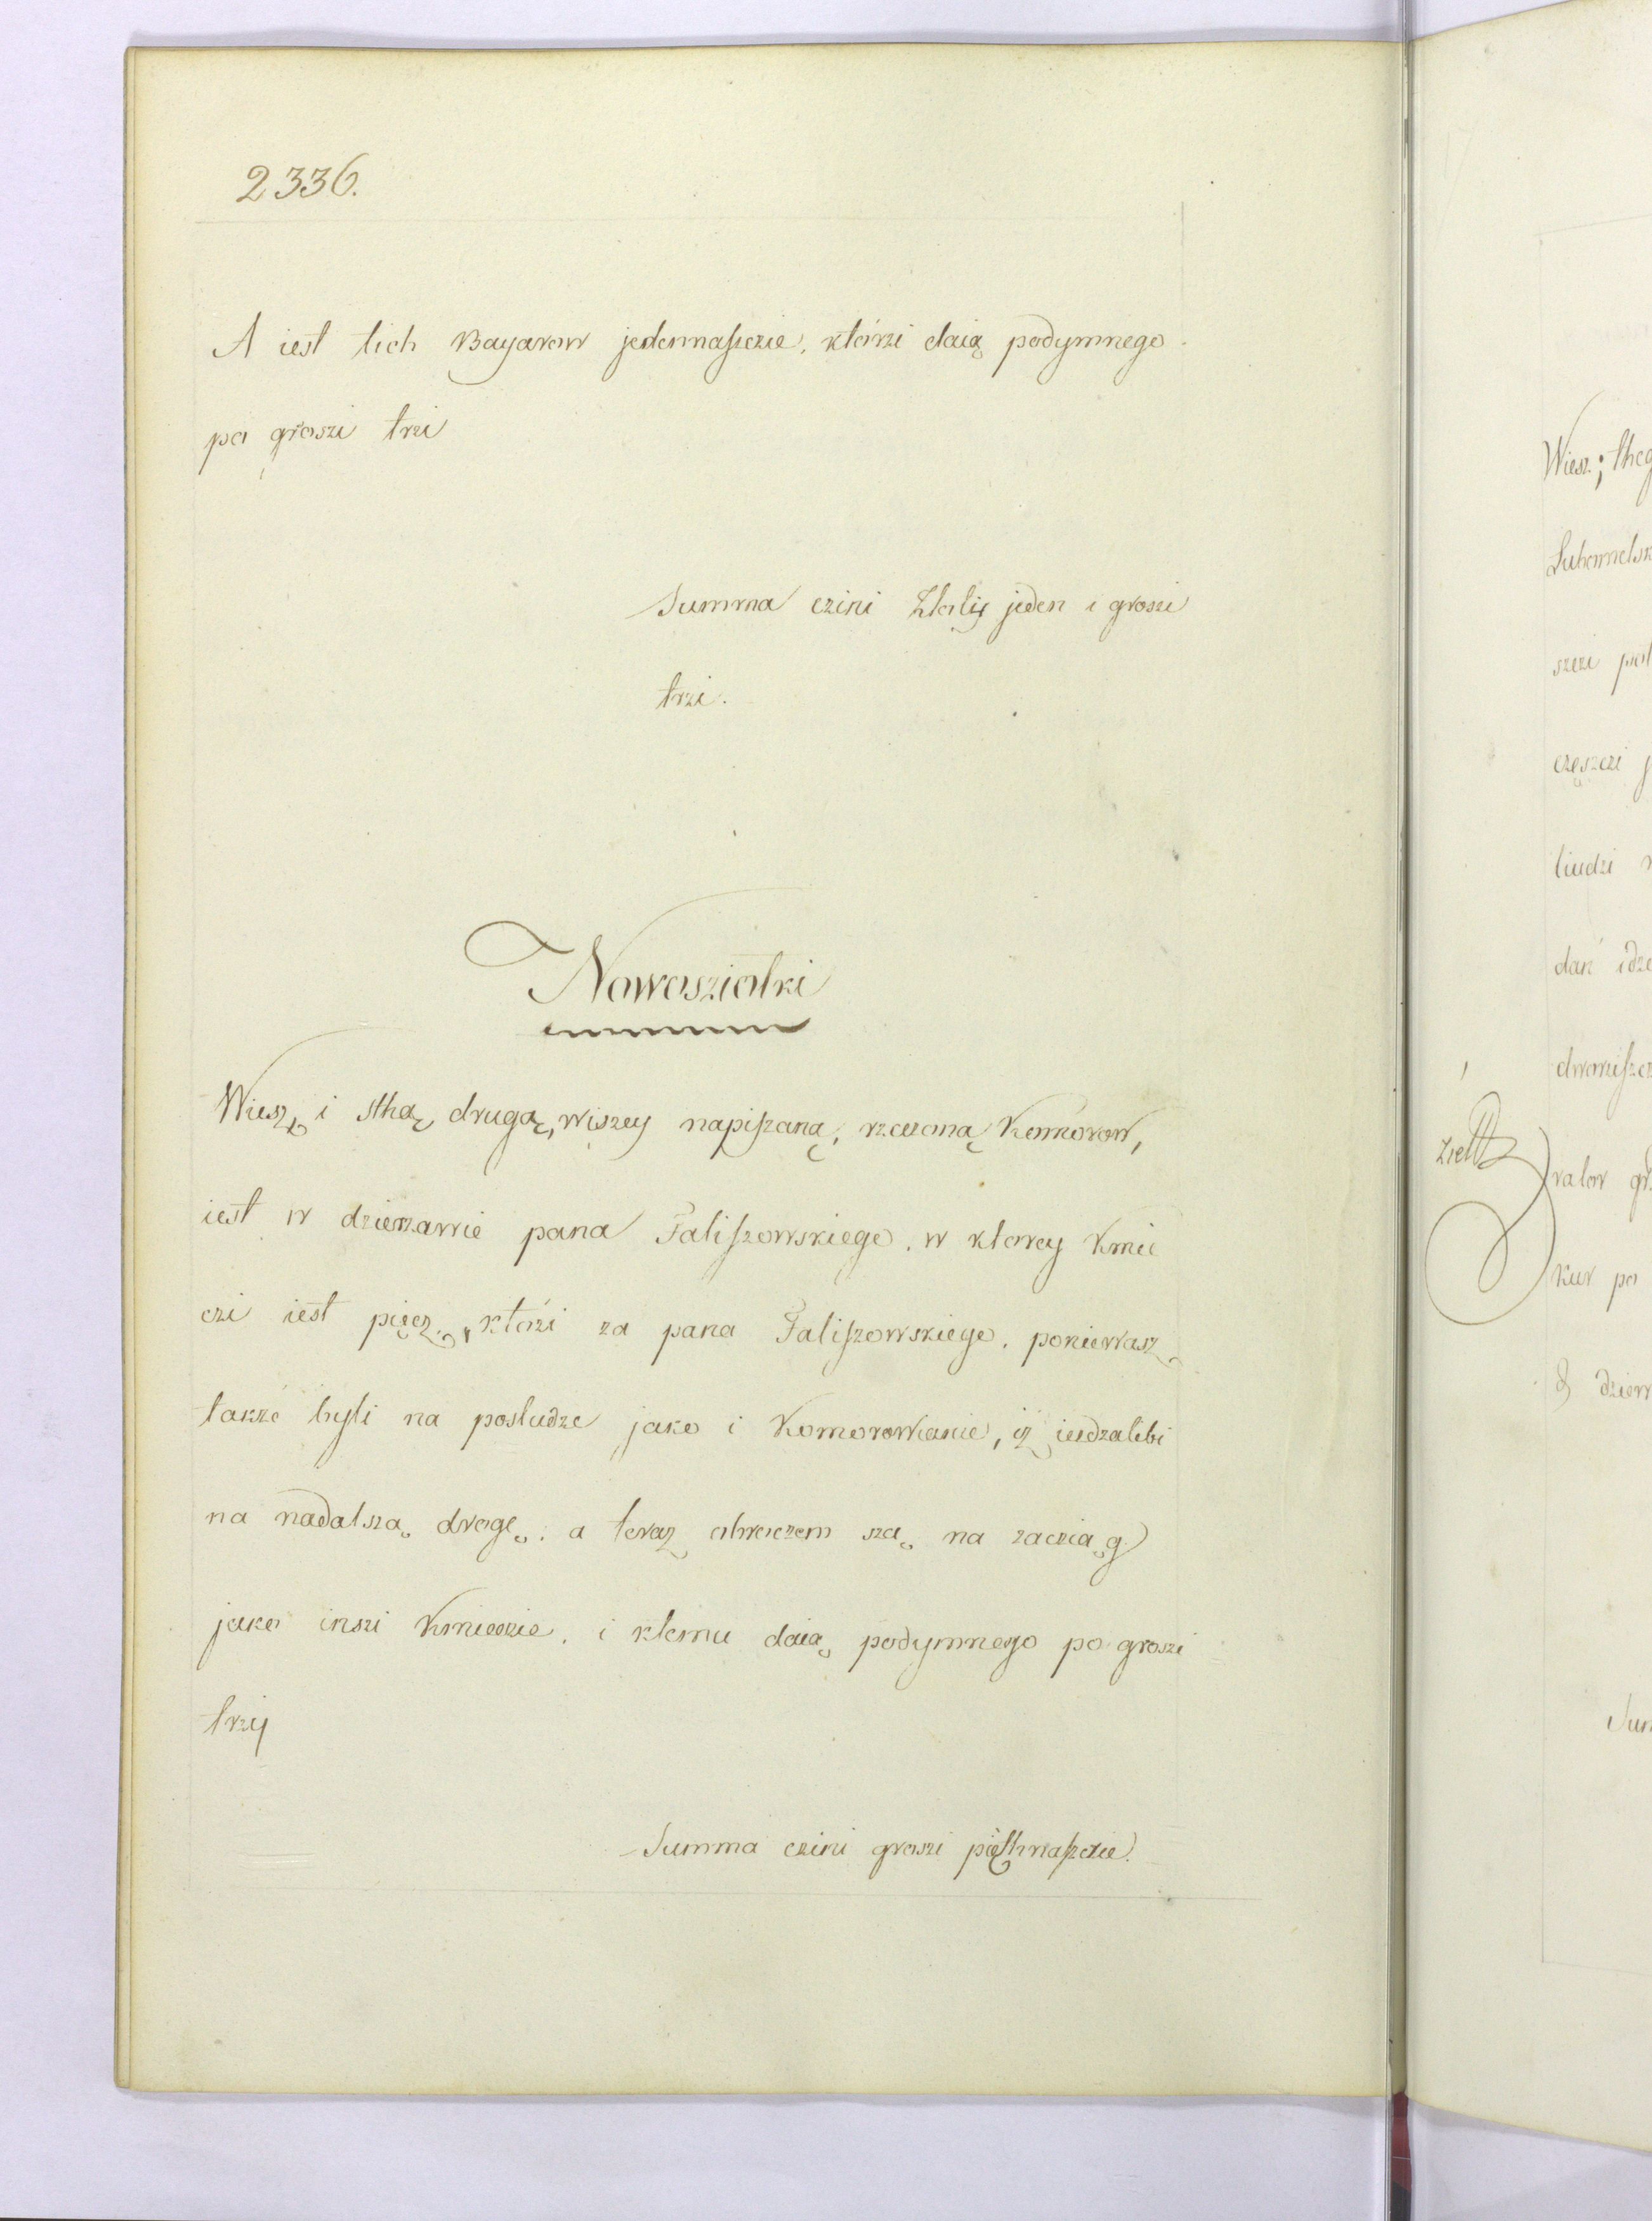 2336.
A iest tich Bayarow jedennaszczie, którzi daią podymnego
po groszi trzi
Summa czini Złotiy jeden i groszi
trzi.
Nowosziołki
Wiesz i sthą drugą, wiszey napiszaną, rzeczoną Komorow,
iest w dzierzawie pana Faliszowskiego, w ktorey Kmie
czi iest pięcz, którzi za pana Faliszowskiego, poniewasz
takze byli na posludze jako i Komorowianie, iz iezdzalibi
na nadalszą drogę, a teraz obroczem szą na zacziąg
jako inszi Kmieczie, i ktemu daią podymnego po groszi
trzy
Summa czini groszi pięthnaszczie.
Wiesz; theg
szczi
częszczi
liudzi
dań idze
zielb
kur po
Sum